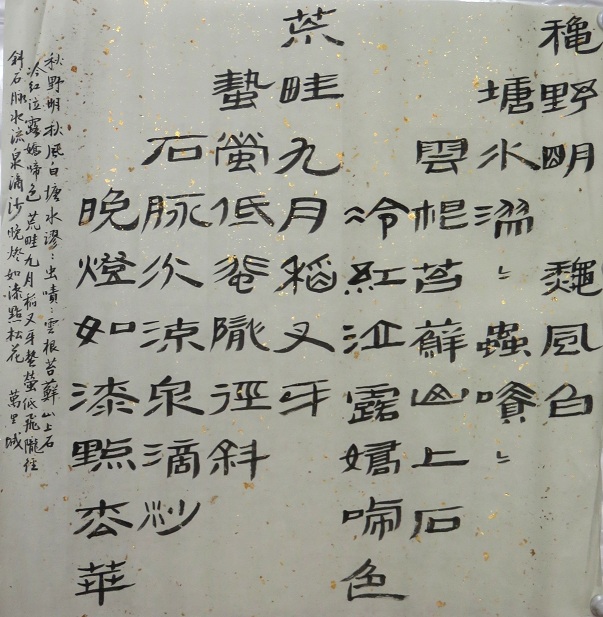 龝野明 龝風白
塘水漻〻蟲嘖〻
雲根苔蘚山上石
冷紅泣露嬌啼色
荒畦九月稻叉牙
蟄螢低飛隴徑斜
石脉水流泉滴沙
晚燈如漆點枩華
秋野明秋風白塘水漻〻虫嘖〻雲根苔蘚山上石
冷紅泣露嬌啼色荒畦九月稻叉牙蟄螢低飛隴徑
斜石脉水流泉滴沙晚灯如漆點松花 萬里城